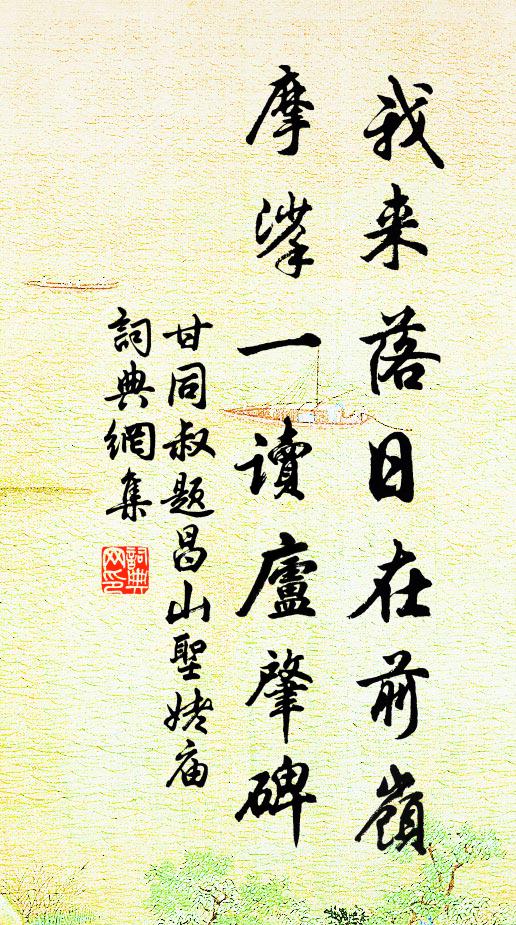 我来落日在前嶺
摩挲一讀廬肇碑
甘同叔题昌山聖姥庙
詞典網集
詞典网印